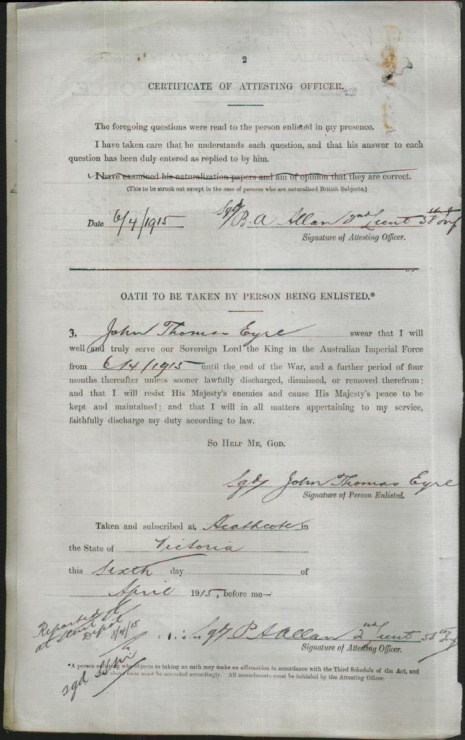 2
CERTIFICATE OF ATTESTING OFFICER.
The foregoing questions were read to the person enlisted in my presence.
I have taken care that he understands each question, and that his answer to each
question has been duly entered as replied to by him.
I have examined his naturalization papers and am of opinion that they are correct.
(This to be struck out except in the case of persons who are naturalized British Subjects.)
Date 6/4/1915 Sgd/ Allan 2nd Lieut
Signature of Attesting Officer.
OATH TO BE TAKEN BY PERSON BEING ENLISTED.*
3. John Thomas Eyre swear that I will
well and truly serve our Sovereign Lord the King in the Australian Imperial Force
from 6/4/1915 until the end of the War, and a further period of four
months thereafter unless sooner lawfully discharged, dismissed, or removed therefrom:
and that I will resist His Majesty's enemies and cause His Majesty's peace to be
kept and maintained; and that I will in all matters appertaining to my service,
faithfully discharge my duty according to law.
SO HELP ME, GOD.
Sgd/ John Thomas Eyre
Signature of Person Enlisted.
Taken and subscribed at Heathcote in
the State of Victoria
this Sixth day of
April 1915, before me—
Reported
at Depot
8/4/15
Sgd/ Allan 2nd Lieut
Signature of Attesting Officer.
sgd
*A person objects to taking an oath may make an affirmation in accordance with the Third Schedule of the Act, and
must be amended accordingly. All amendments must be initialed by the Attesting Officer.